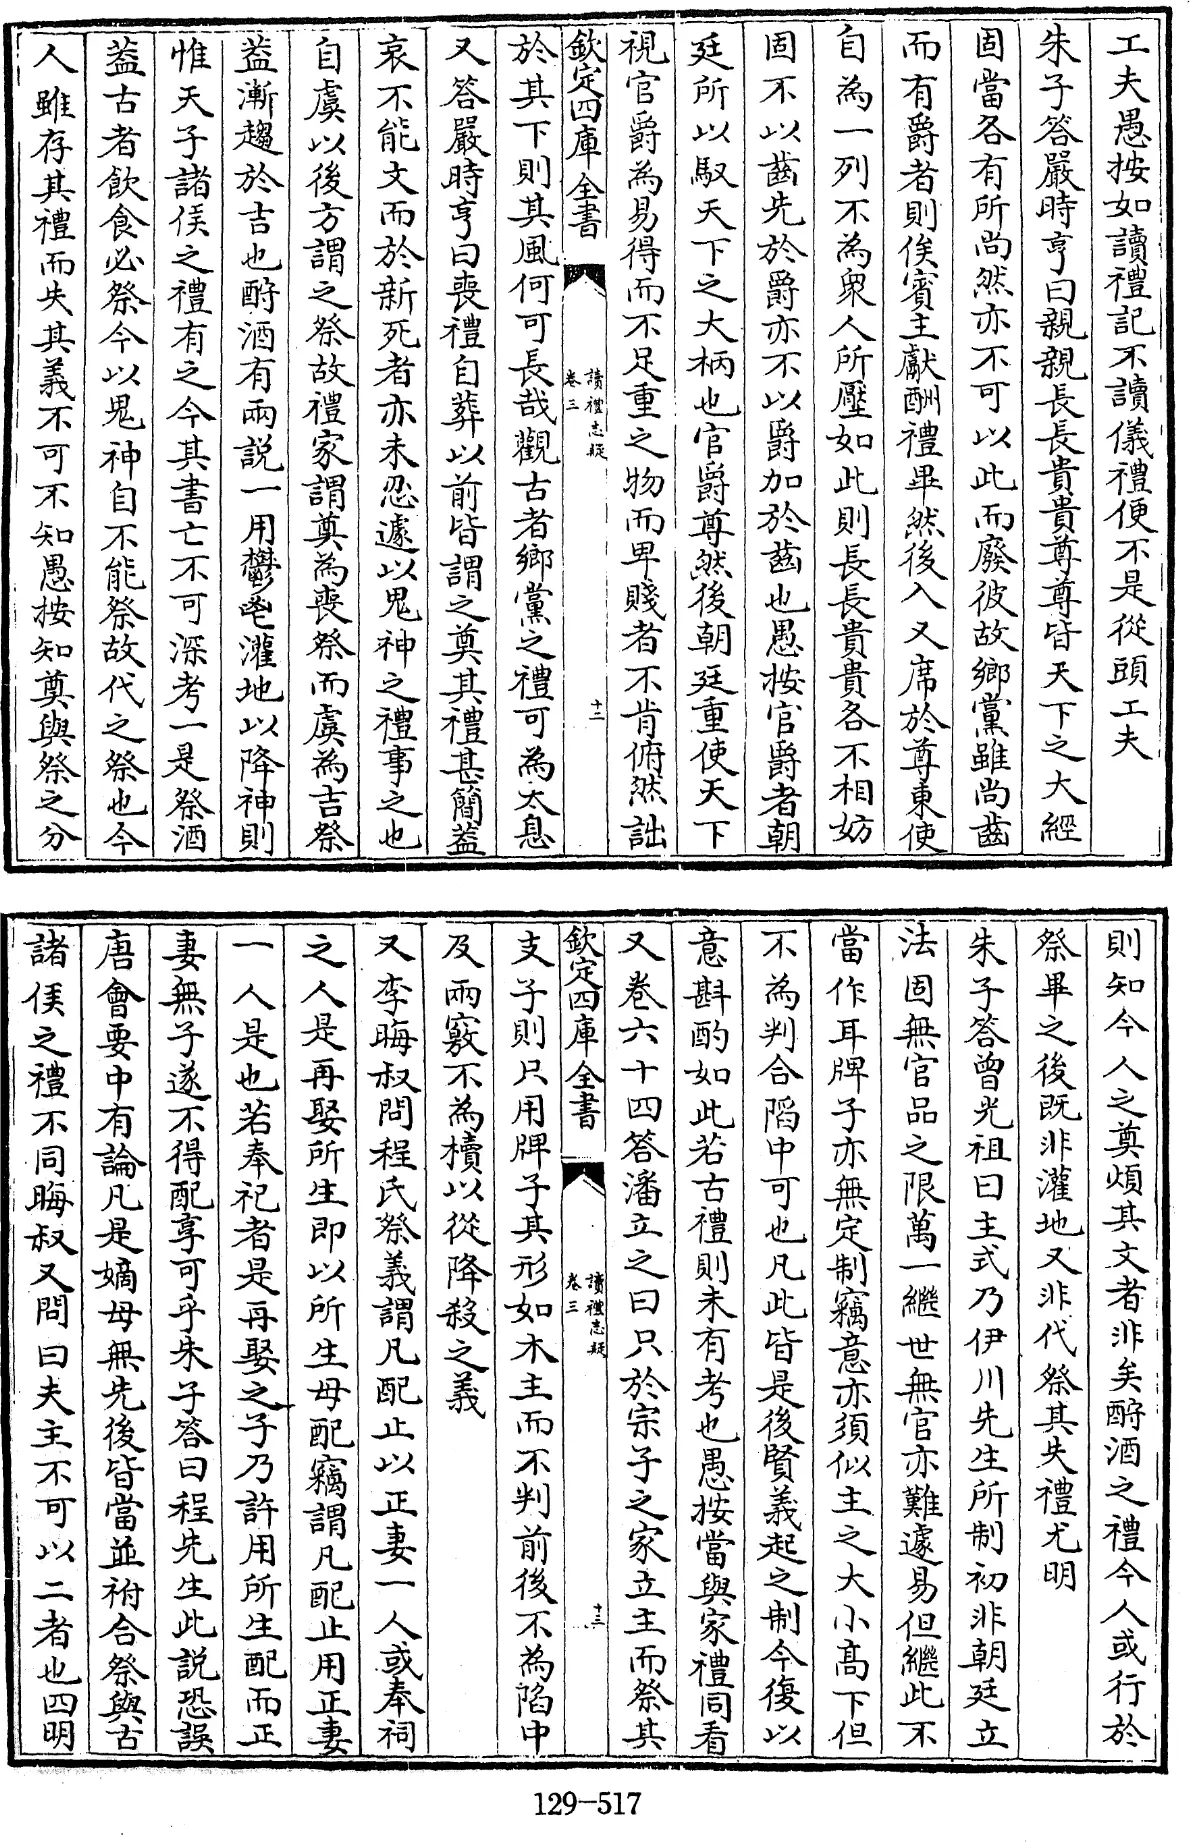 工夫愚按如讀禮記不讀儀禮便不是從頭工夫
朱子答嚴時亨曰親親長長貴貴尊尊皆天下之大經
固當各有所尚然亦不可以此而廢彼故鄉黨雖尚齒
而有爵者則俟賓主獻酬禮畢然後入又席於尊東使
自為一列不為衆人所壓如此則長長貴貴各不相妨
固不以齒先於爵亦不以爵加於齒也愚按官爵者朝
廷所以馭天下之大柄也官爵尊然後朝廷重使天下
視官爵為易得而不足重之物而卑賤者不肯俯然詘
欽定四庫全書
讀禮志疑
卷三
十二
於其下則其風何可長哉觀古者鄉黨之禮可為太息
又答嚴時亨曰喪禮自葬以前皆謂之奠其禮甚簡蓋
哀不能文而於新死者亦未忍遽以鬼神之禮事之也
自虞以後方謂之祭故禮家謂奠為喪祭而虞為吉祭
蓋漸趨於吉也酹酒有兩説一用鬱鬯灌地以降神則
惟天子諸侯之禮有之今其書亡不可深考一是祭酒
蓋古者飲食必祭今以鬼神自不能祭故代之祭也今
人雖存其禮而失其義不可不知愚按知奠與祭之分
則知今人之奠煩其文者非矣酹酒之禮今人或行於
祭畢之後既非灌地又非代祭其失禮尤明
朱子答曾光祖曰主式乃伊川先生所制初非朝廷立
法固無官品之限萬一繼世無官亦難遽易但繼此不
當作耳牌子亦無定制竊意亦須似主之大小高下但
不為判合陷中可也凡此皆是後賢義起之制今復以
意斟酌如此若古禮則未有考也愚按當與家禮同看
又卷六十四答潘立之曰只於宗子之家立主而祭其
欽定四庫全書
讀禮志疑
卷三
十三
支子則只用牌子其形如木主而不判前後不為陷中
及兩竅不為櫝以從降殺之義
又李晦叔問程氏祭義謂凡配止以正妻一人或奉祠
之人是再娶所生即以所生母配竊謂凡配止用正妻
一人是也若奉祀者是再娶之子乃許用所生配而正
妻無子遂不得配享可乎朱子答曰程先生此説恐誤
唐會要中有論凡是嫡母無先後皆當並祔合祭與古
諸侯之禮不同晦叔又問曰夫主不可以二者也四明
129-517